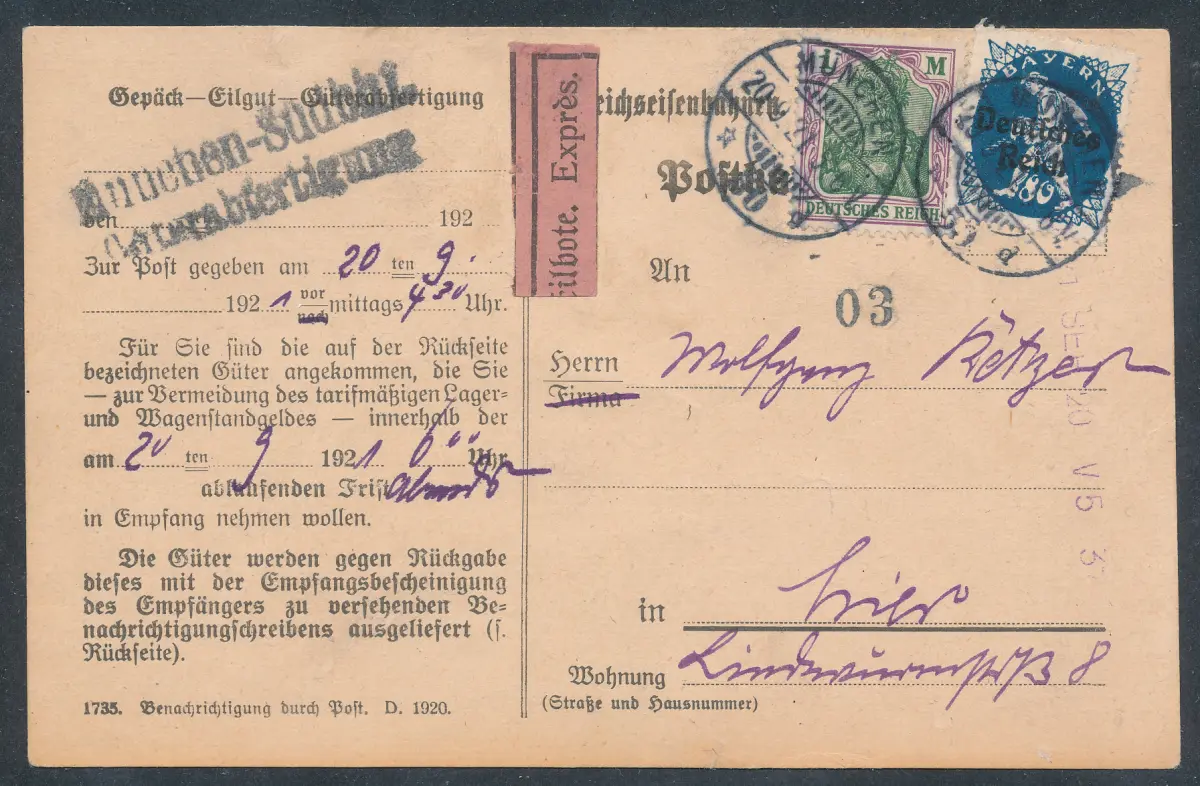 Gepäck—Eilgut—Güterabfertigung
München-Südbhf.
Güterabfertigung
den 192
Zur Post gegeben am 20 ten 9.
1921 vor
nach mittags 4 30 Uhr.
Für Sie sind die auf der Rückseite
bezeichneten Güter angekommen, die Sie
— zur Vermeidung des tarifmäßigen Lager-
und Wagenstandgeldes — innerhalb der
am 20 ten 9 1921 6 00 Uhr
ablaufenden Frist Abends
in Empfang nehmen wollen.
Die Güter werden gegen Rückgabe
dieses mit der Empfangsbescheinigung
des Empfängers zu versehenden Be-
nachrichtigungschreibens ausgeliefert (s.
Rückseite).
1735. Benachrichtigung durch Post. D. 1920.
Eilbote. Exprès.
eichseisenbahnen
Postka
1 M
DEUTSCHES REICH
BAYERN
Deutsches
Reich
80
MÜNCHEN
20. 9. 21
An
03
Herrn
Firma
Wolfgang
in hier
Wohnung Lindwurmstr 8
(Straße und Hausnummer)
SEP 20 V 5 3